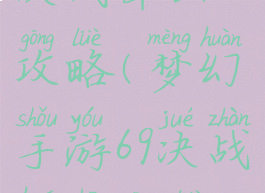 gōng lüè mèng huàn
攻略(梦幻
shǒu yóu jué zhàn
手游69决战